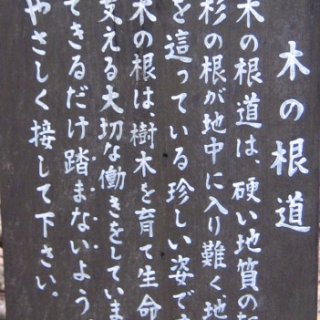 木の根道
木の根道は、硬い地質の
杉の根が地中に入り難く、地
を這っている珍しい姿で
木の根は、樹木を育て生命
支える大切な働きをしていま
できるだけ踏まないよう
やさしく接して下さい。